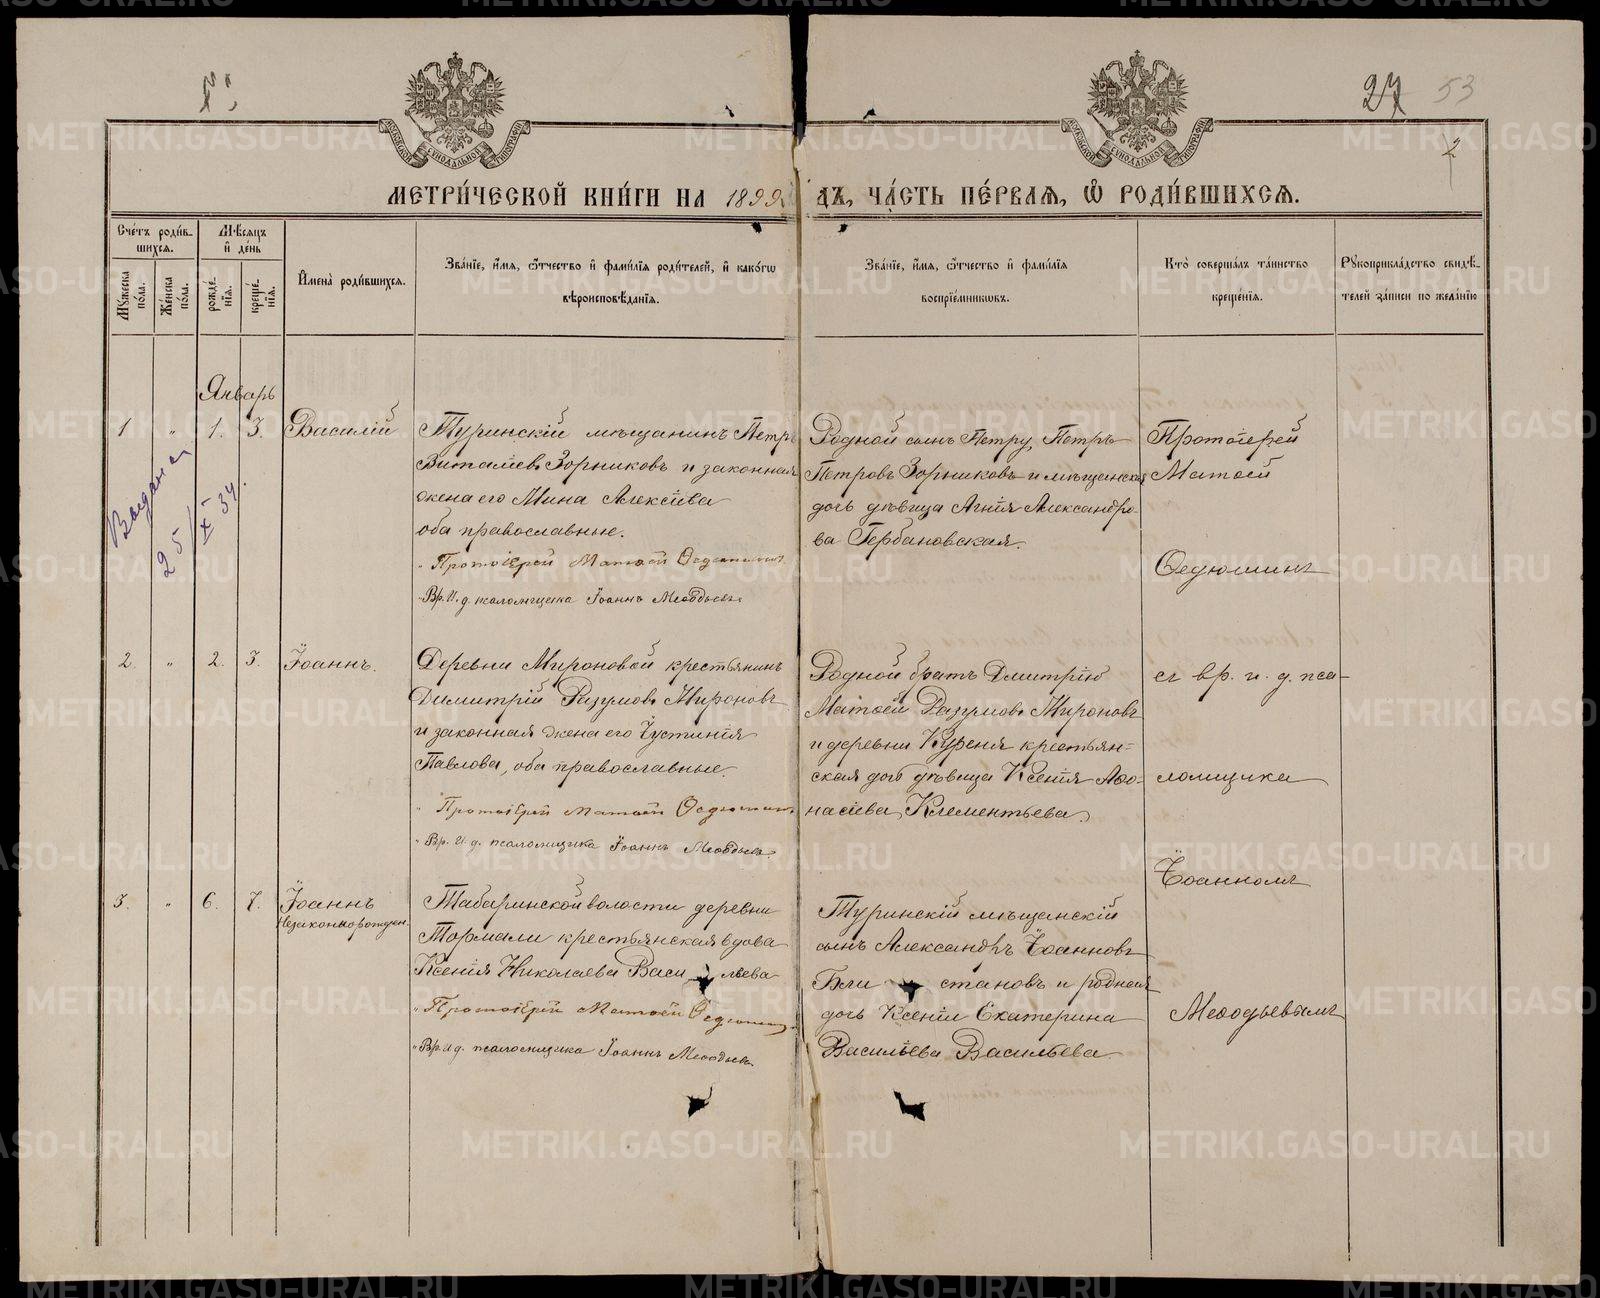 27 53
2
МОСКОВСКОЙ СѴНОДАЛЬНОЙ ТИПОГРАФІИ
МОСКОВСКОЙ СѴНОДАЛЬНОЙ ТИПОГРАФІИ
МЕТРИ́ЧЕСКОЙ КНИ́ГИ НА 1899 ДЪ, ЧА́СТЬ ПЕ́РВАЯ, Ѡ РОДИ́ВШИХСЯ.
Сче́тъ роди́в-
шихся.
Мꙋжеска по́ла.
Же́нска по́ла.
Мѣ́сяцъ
и҆ де́нь
рожде́-
нїя.
креще́-
нїя.
И҆мена̀ роди́вшихся.
Зва́нїе, и҆́мя, ѻ҆́тчество и҆ фами́лїя роди́телей, и҆ како́гѡ
вѣроисповѣ́данїя.
Зва́нїе, и҆́мя, ѻ҆́тчество и҆ фами́лїя
воспрїе́мникѡвъ.
Кто̀ соверша́лъ та́инство
креще́нїя.
Рꙋкоприкла́дство свидѣ́-
телей за́писи по жела́нїю
Январь
1 " 1. 3. Василій
Туринскій мѣщанинъ Петръ
Виталіевъ Зорниковъ и законная
жена его Мина Алексіева
оба православные.
" Протоіерей Матѳей Ѳедюшинъ.
" Вр. И. д. псаломщика Іоаннъ Меѳодьевъ.
Родной сынъ Петру, Петръ
Петровъ Зорниковъ и мѣщанская
дочь дѣвица Агнія Александро-
ва Гербановская.
Протоіерей
Матѳей
Ѳедюшинъ
Выдана
25/X 34.
2. " 2. 3. Іоаннъ.
Деревни Мироновой крестьянинъ
Димитрій Разумовъ Мироновъ
и законная жена его Іустинія
Павлова, оба православные.
" Протоіерей Матѳей Ѳедюшинъ
" Вр. И. д. псаломщика Іоаннъ Меѳодьевъ.
Родной братъ Дмитрію
Матѳей Разумовъ Мироновъ
и деревни Куреня крестьян-
ская дочь дѣвица Ксенія Аѳо-
насіева Клементьева.
съ вр. и. д. пса-
ломщика
Іоанномъ
3. " 6. 7. Іоаннъ
Незаконнорожден.
Табаринской волости деревни
Тормали крестьянская вдова
Ксенія Николаева Васильева
" Протоіерей Матѳей Ѳедюшинъ
" Вр. И д. псаломщика Іоаннъ Меѳодьевъ.
Туринскій мѣщанскій
сынъ Александръ Іоанновъ
Бли становъ и родная
дочь Ксеніи Екатерина
Васильева Васильева.
Меѳодьевымъ
METRIKI.GASO-URAL.RU